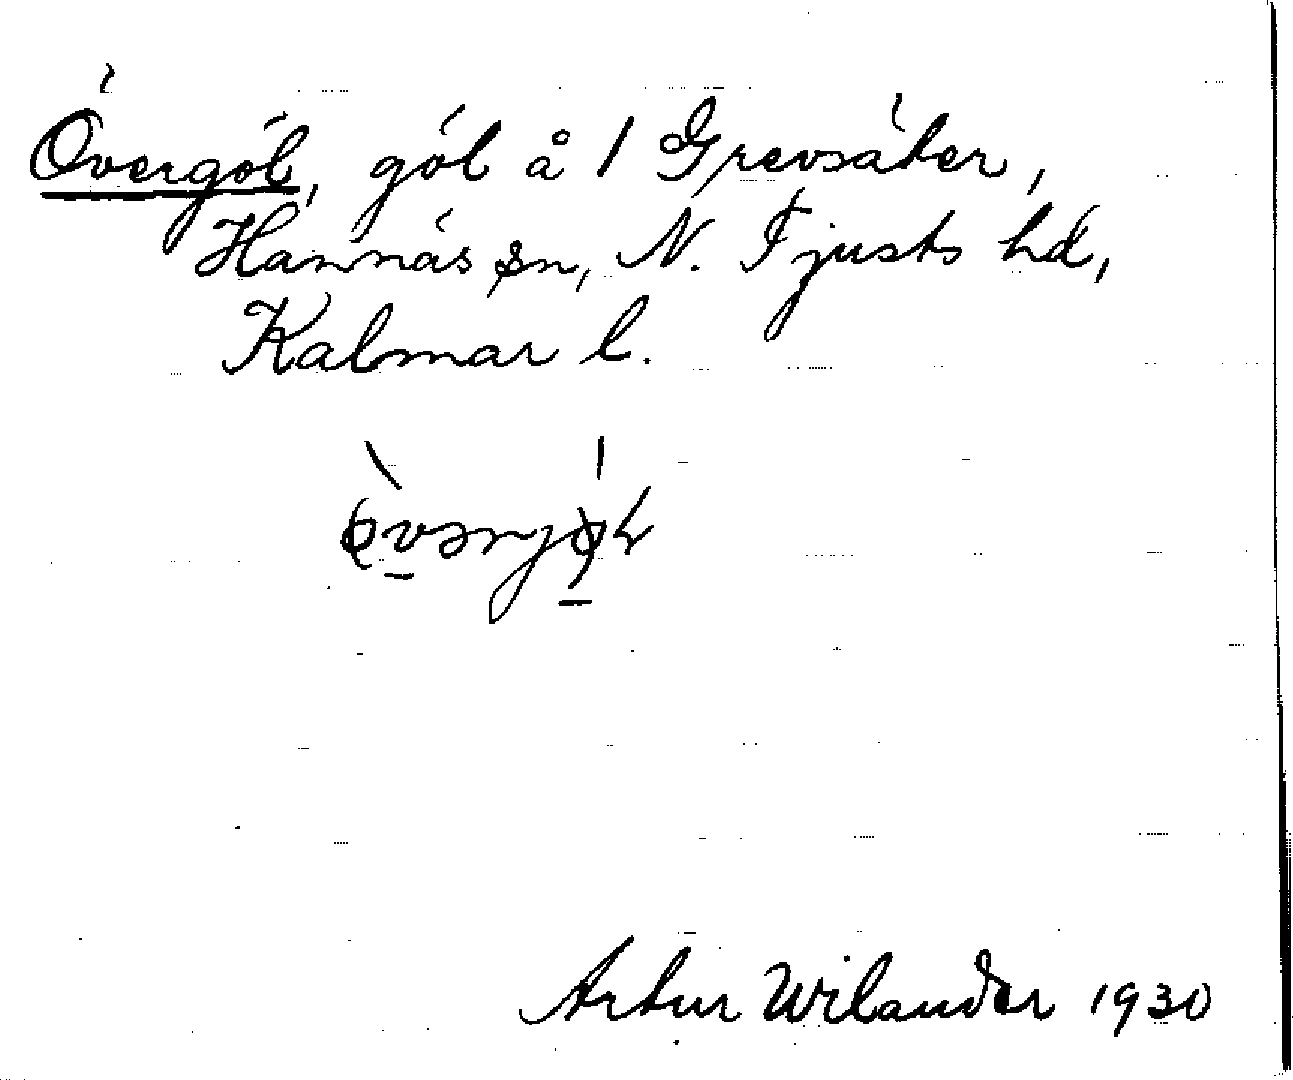 Övergöl, göl å 1 Grevsäter,
Hannäs sn, N. Tjusts hd,
Kalmar l.
Artur Wilander 1930